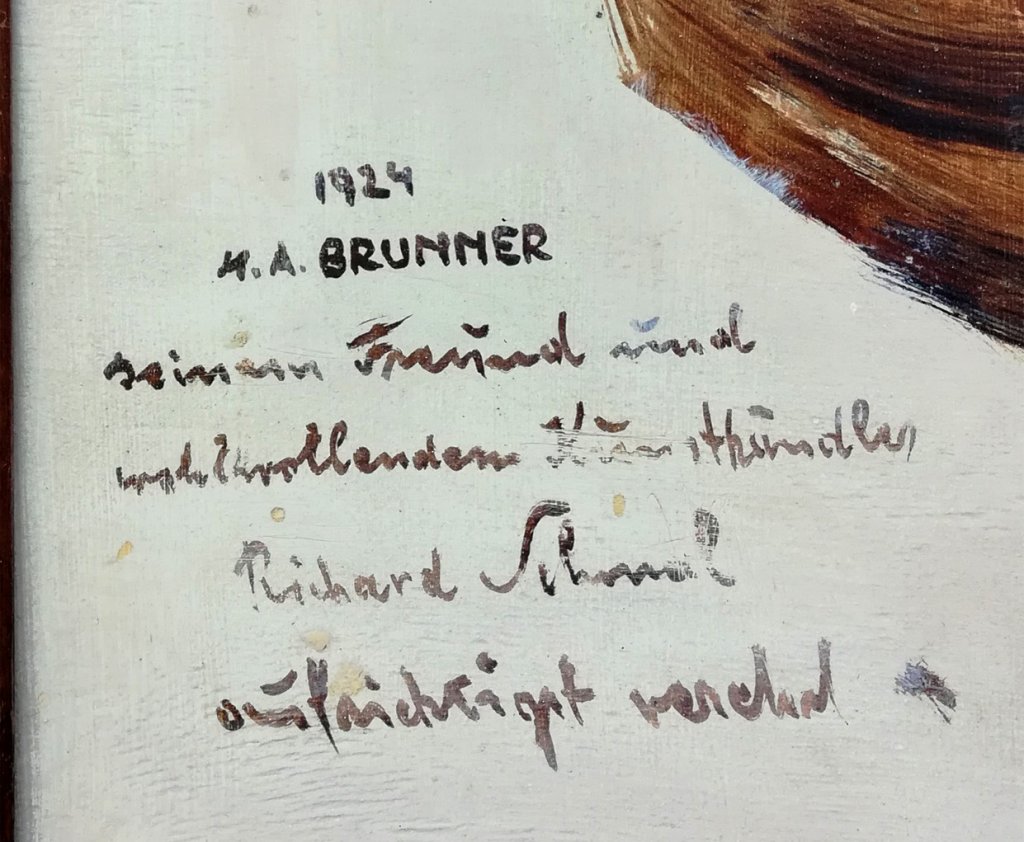 1924
H.A. BRUNNER
seinem Freund und
wohlwollendem Kunsthändler
Richard
aufrichtigst